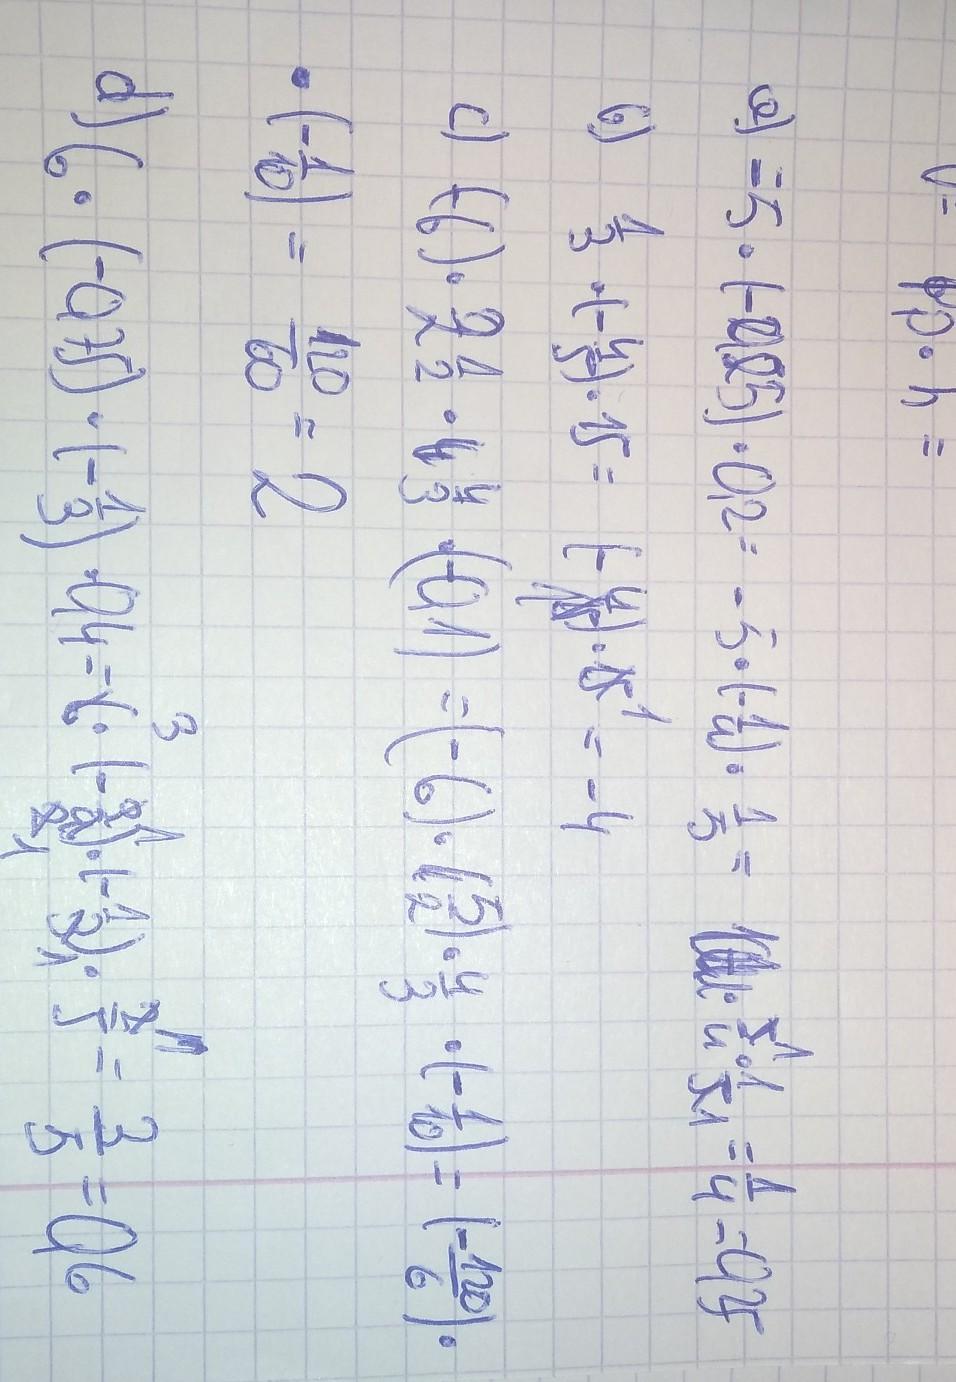 V= Pp · h =
a) -5 · (-0,25) · 0,2 = -5 · (-1/4) · 1/5 = 5/4 · 1/5 = 1/4 =
b) 1/3 · (-4/5) · 15 = (-4/15) · 15 = -4
c) (-6) · 2 1/2 · 4/3 · (-0,1) = (-6) · (5/2) · 4/3 · (-1/10) = (-120/6) ·
· (-1/10) = 120/60 = 2
d) 6 · (-0,75) · (-1/3) · 0,4 = 6 · (-3/4) · (-1/3) · 2/5 = 3/5 = 0,6